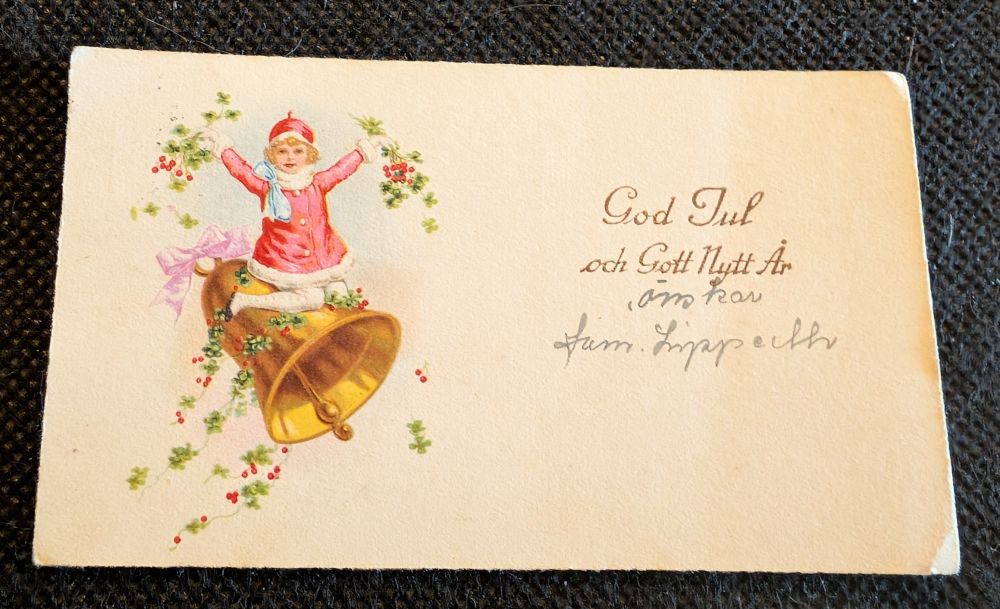 God Jul
och Gott Nytt År
önskar
Fam.